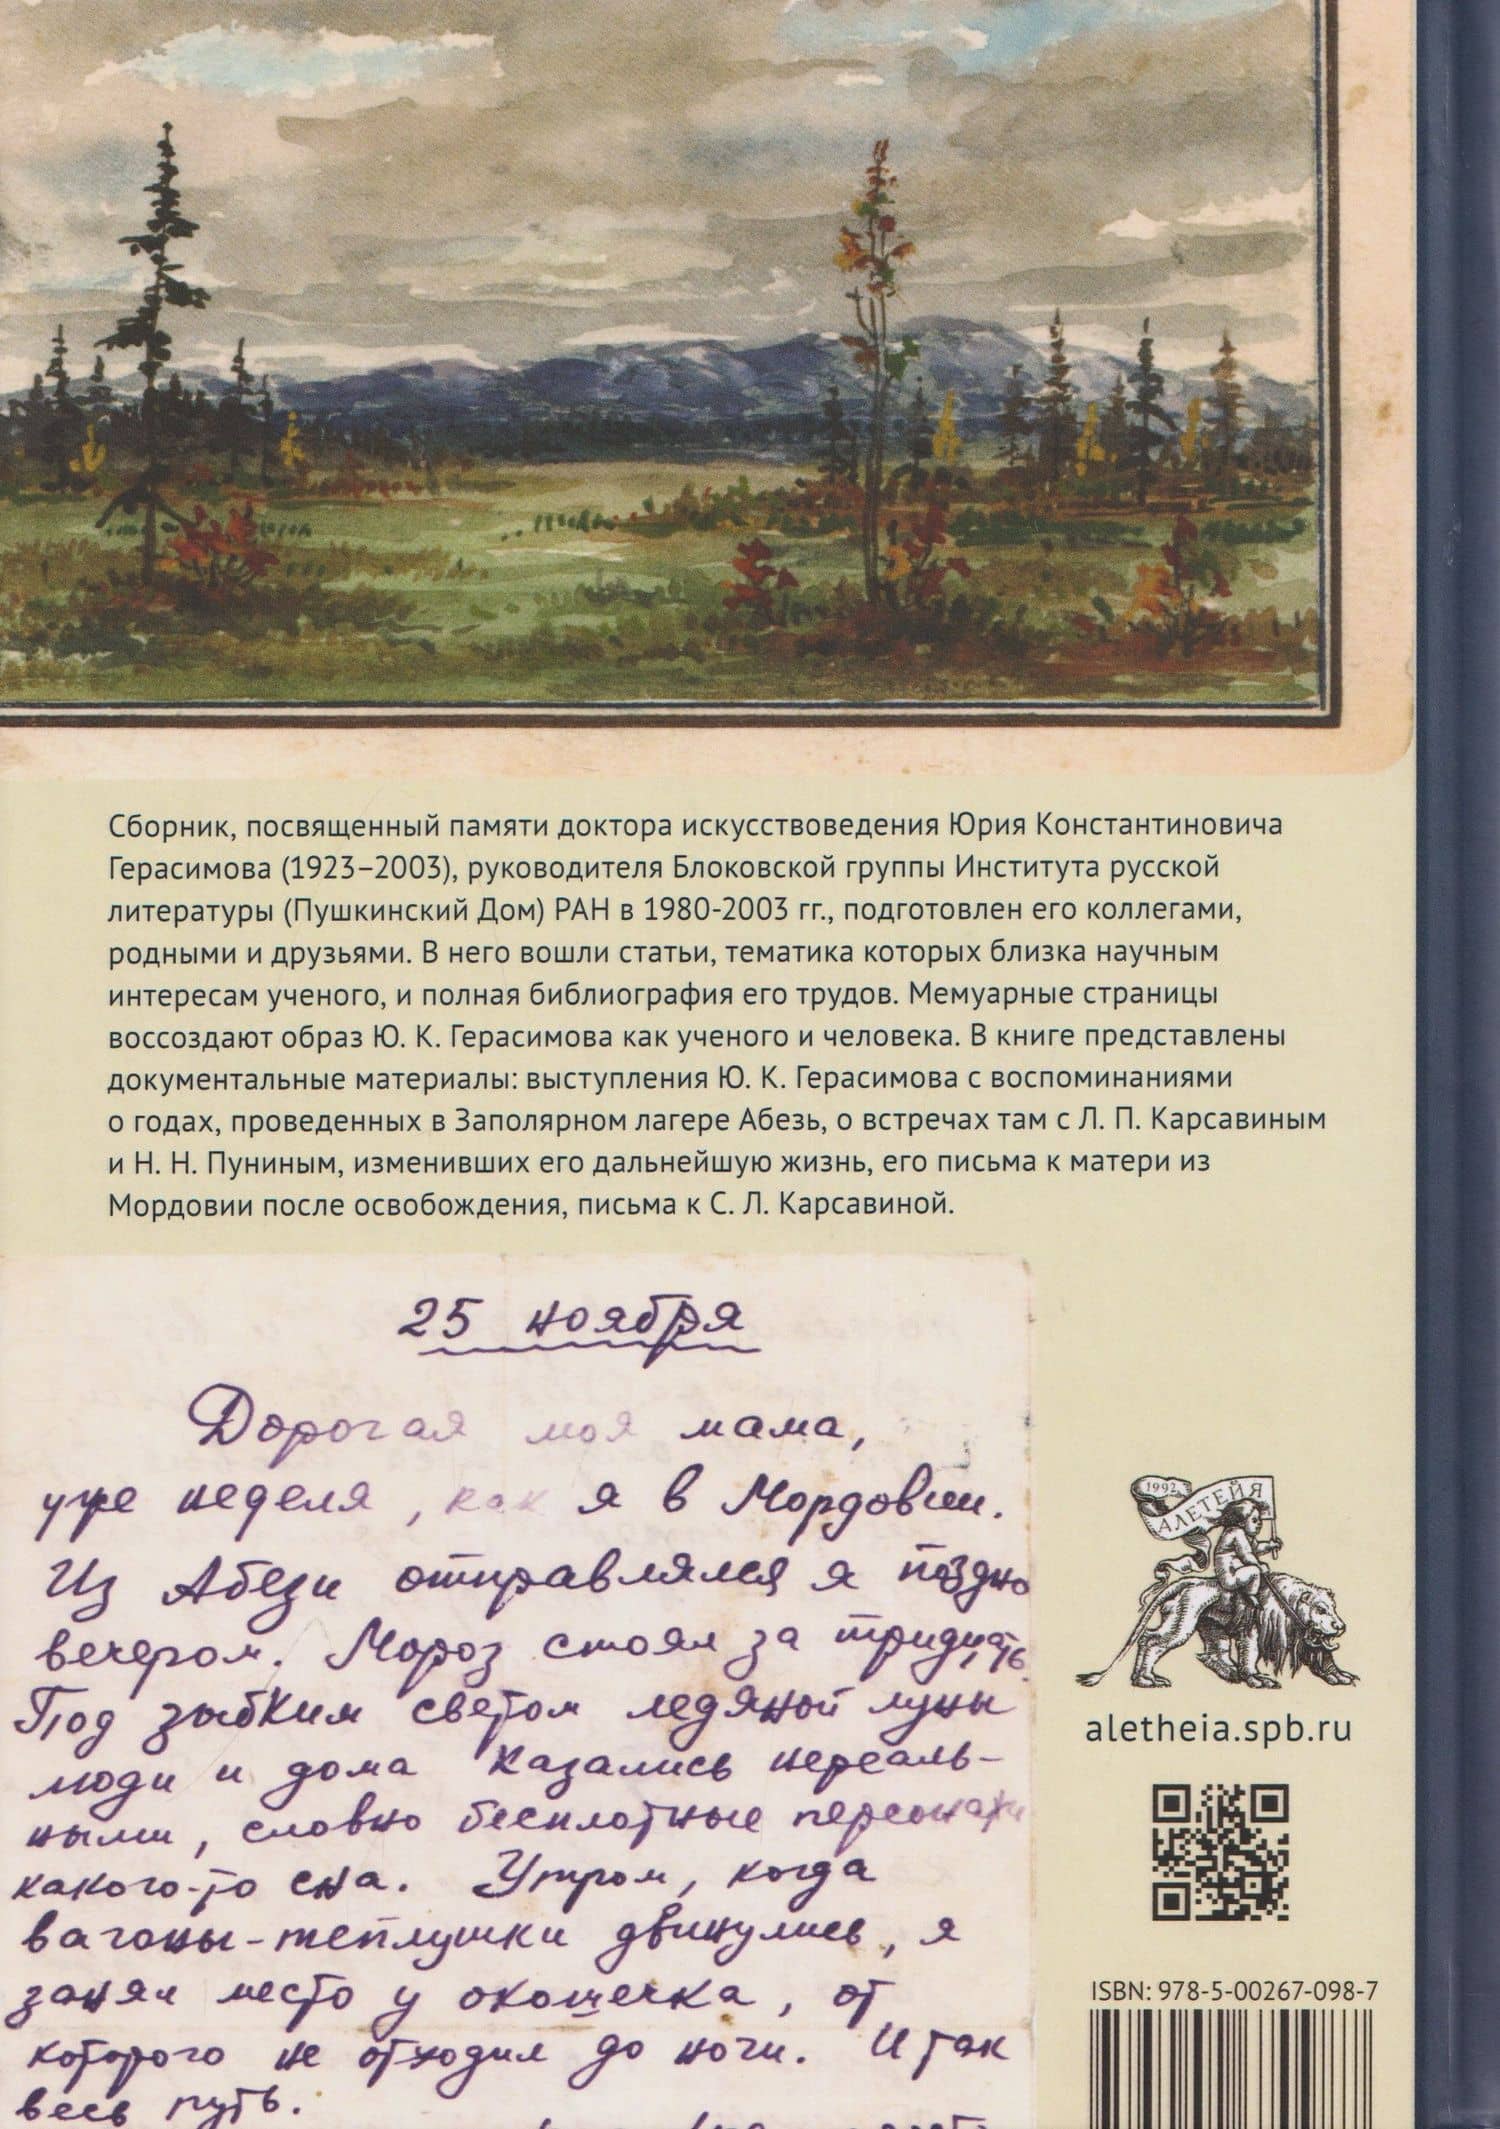 Сборник, посвященный памяти доктора искусствоведения Юрия Константиновича
Герасимова (1923–2003), руководителя Блоковской группы Института русской
литературы (Пушкинский Дом) РАН в 1980-2003 гг., подготовлен его коллегами,
родными и друзьями. В него вошли статьи, тематика которых близка научным
интересам ученого, и полная библиография его трудов. Мемуарные страницы
воссоздают образ Ю. К. Герасимова как ученого и человека. В книге представлены
документальные материалы: выступления Ю. К. Герасимова с воспоминаниями
о годах, проведенных в Заполярном лагере Абезь, о встречах там с Л. П. Карсавиным
и Н. Н. Пуниным, изменивших его дальнейшую жизнь, его письма к матери из
Мордовии после освобождения, письма к С. Л. Карсавиной.
25 ноября
Дорогая моя мама,
уже неделя, как я в Мордовии.
Из Абези отправлялся я поздно
вечером. Мороз стоял за тридцать.
Под зыбким светом ледяной луны
люди и дома казались нереаль-
ными, словно бесплотные персонажи
какого-то сна. Утром, когда
вагоны-теплушки двинулись, я
занял место у окошечка, от
которого не отходил до ночи. И так
весь путь.
1992
АЛЕТЕЙЯ
aletheia.spb.ru
ISBN: 978-5-00267-098-7